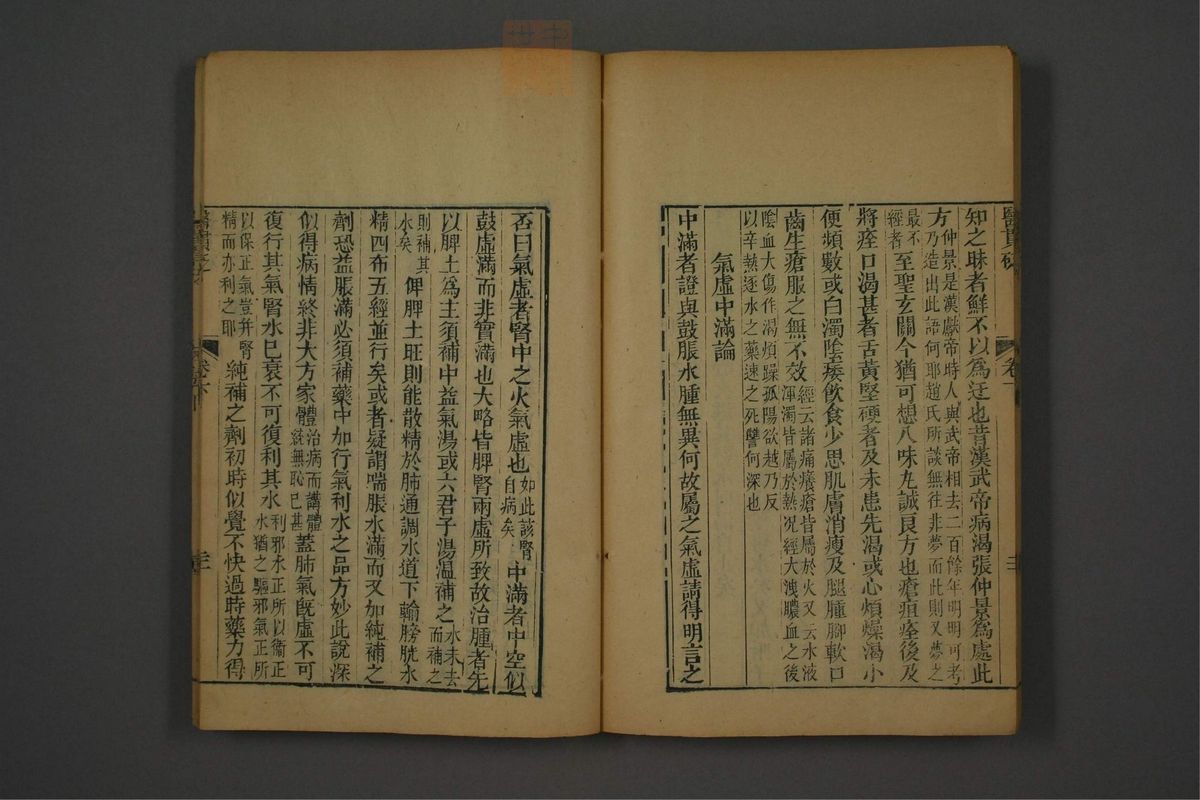 醫貫砭
卷下
三
知之昧者鮮不以為迂也昔漢武帝病渴張仲景為處此
方仲景是漢獻帝時人與武帝相去二百餘年明明可考
方乃造出此語何耶趙氏所談無往非夢而此則又夢之
最不
經者至聖玄關今猶可想八味丸誠良方也瘡疽痊後及
將痊口渴甚者舌黃堅硬者及未患先渴或心煩燥渴小
便頻數或白濁陰痿飲食少思肌膚消瘦及腿腫腳軟口
齒生瘡服之無不效
經云諸痛癢瘡皆屬於火又云水液
渾濁皆屬於熱况經大洩膿血之後
陰血大傷作渴煩躁孤陽欲越乃反
以辛熱逐水之藥速之死讐何深也
氣虛中滿論
中滿者證與鼓脹水腫無異何故屬之氣虛請得明言之
否曰氣虛者腎中之火氣虛也
如此該腎
自病矣
中滿者中空似
鼓虛滿而非實滿也大略皆脾腎兩虛所致故治腫者先
以脾土為主須補中益氣湯或六君子湯温補之
水未去
而補之
則補其
水矣
俾脾土旺則能散精於肺通調水道下輸膀胱水
精四布五經並行矣或者疑謂喘脹水滿而又加純補之
劑恐益脹滿必須補藥中加行氣利水之品方妙此說深
似得病情終非大方家體
治病而講體
統無恥已甚
蓋肺氣既虛不可
復行其氣腎水已衰不可復利其水
利邪水正所以衞正
水猶之驅邪氣正所
以保正氣豈并腎
精而亦利之耶
純補之劑初時似覺不快過時藥力得